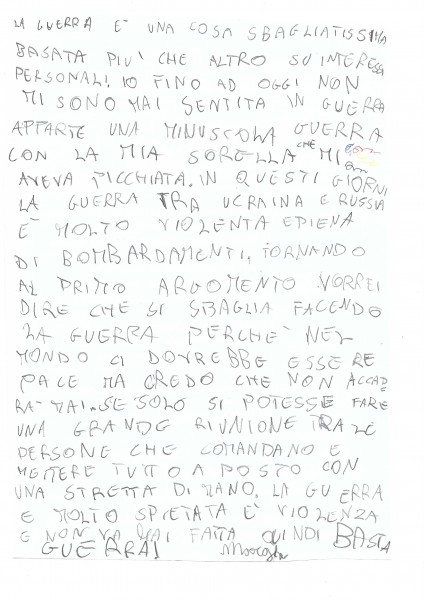 LA GUERRA È UNA COSA SBAGLIATISSIMA
BASATA PIU' CHE ALTRO SU INTERESSI
PERSONALI. IO FINO AD OGGI NON
MI SONO MAI SENTITA IN GUERRA
APPARTE UNA MINUSSOLA GUERRA
CON LA MIA SORELLA CHE MI
AVEVA PICCHIATA. IN QUESTI GIORNI
LA GUERRA TRA UCRAINA E RUSSIA
È MOLTO VIOLENTA E PIENA
DI BOMBARDAMENTI. TORNANDO
AL PRIMO ARGOMENTO VORREI
DIRE CHE SI SBAGLIA FACENDO
LA GUERRA PERCHE' NEL
MONDO CI DOVREBBE ESSERE
PACE MA CREDO CHE NON ACCAD
RA' MAI. SE SOLO SI POTESSE FARE
UNA GRANDE RIUNIONE TRA LE
PERSONE CHE COMANDANO E
METTERE TUTTO A POSTO CON
UNA STRETTA DI MANO. LA GUERRA
E MOLTO SPIETATA È VIOLENZA
E NON VA MAI FATTA QUINDI BASTA
GUERRA!